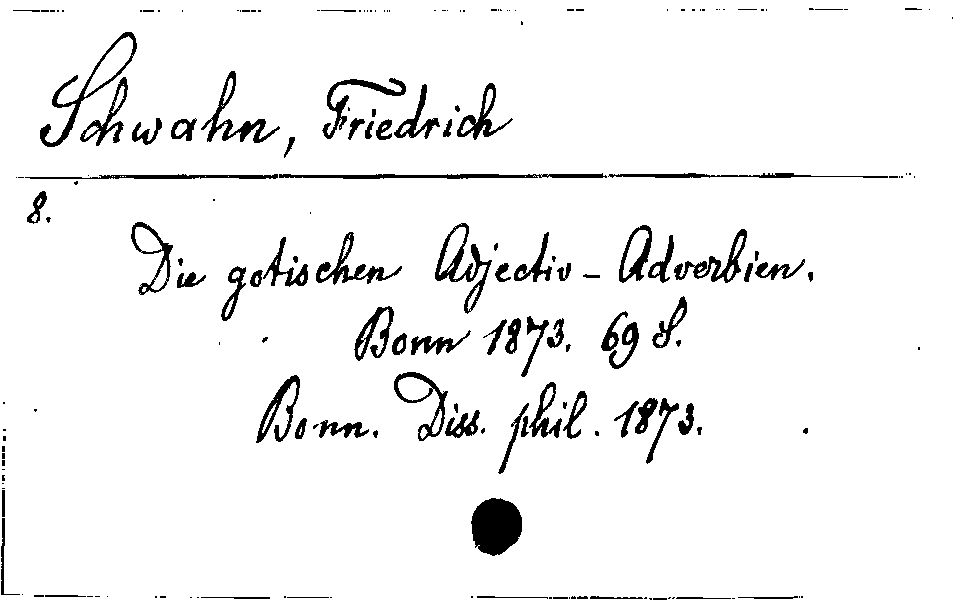 Schwahn, Friedrich
8.
Die gotischen Adjectiv-Adverbien.
Bonn 1873. 69 S.
Bonn. Diss. phil. 1873.